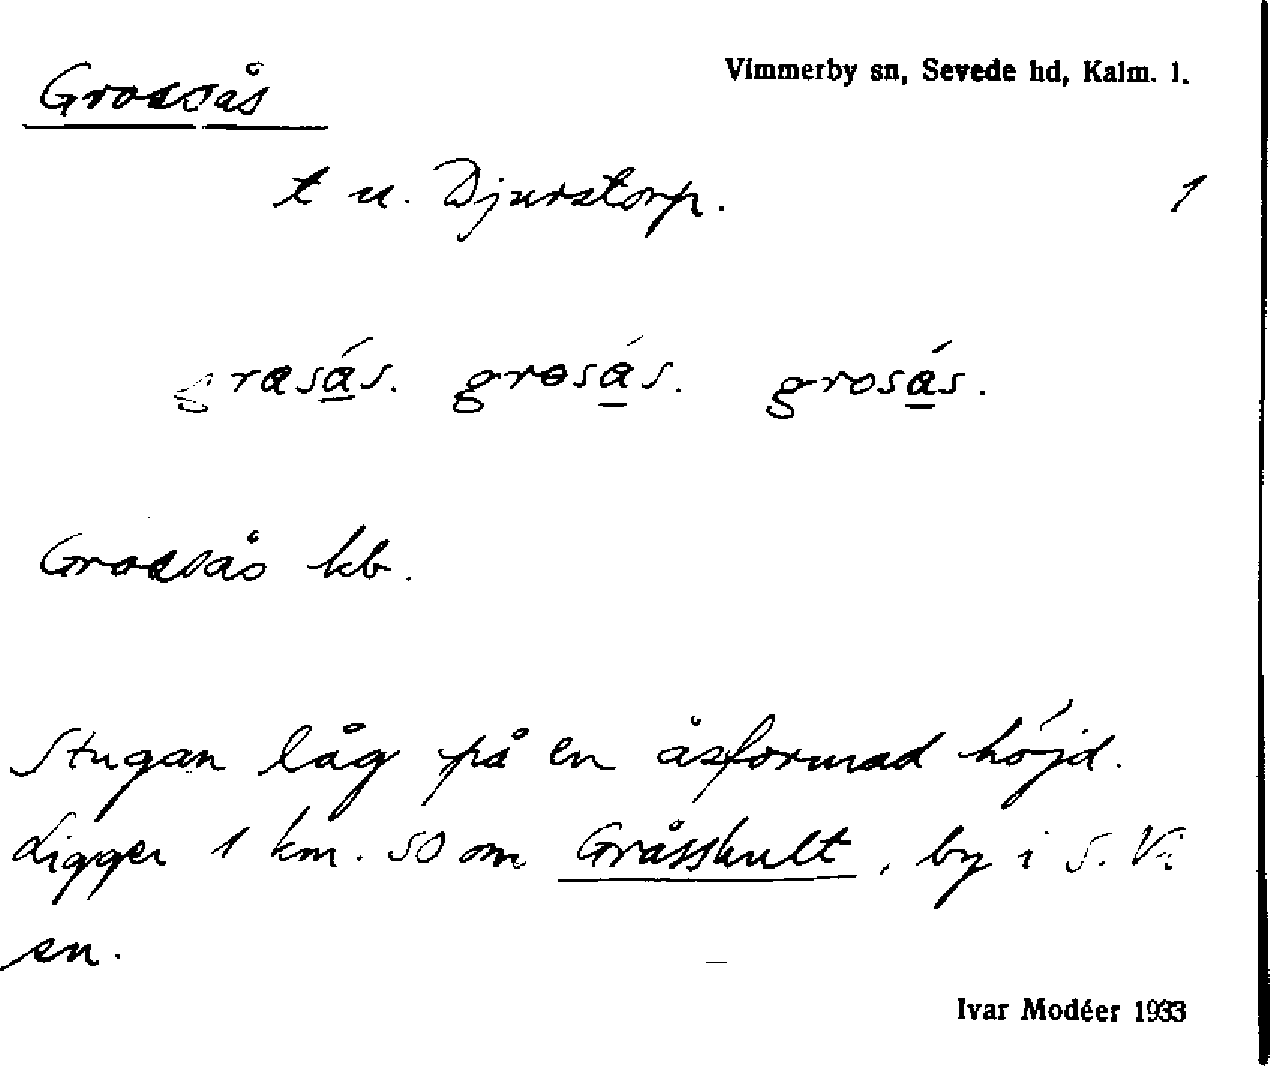 Grossås
Vimmerby sn, Sevede hd, Kalm. l.
t u. Djurstorp.
1
grasás. grosás. grosás.
Grossås kb.
Stugan låg på en åsformad höjd.
Ligger 1 km. SO om Gråsshult, by i S. Vi
sn.
Ivar Modéer 1933